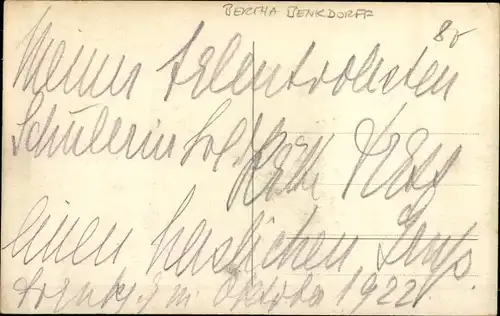 BERTHA BENKDORFF
80
Meiner talentvollsten
Schülerin Frl. Käthe
einen herzlichen Gruß.
im Oktober 1922.